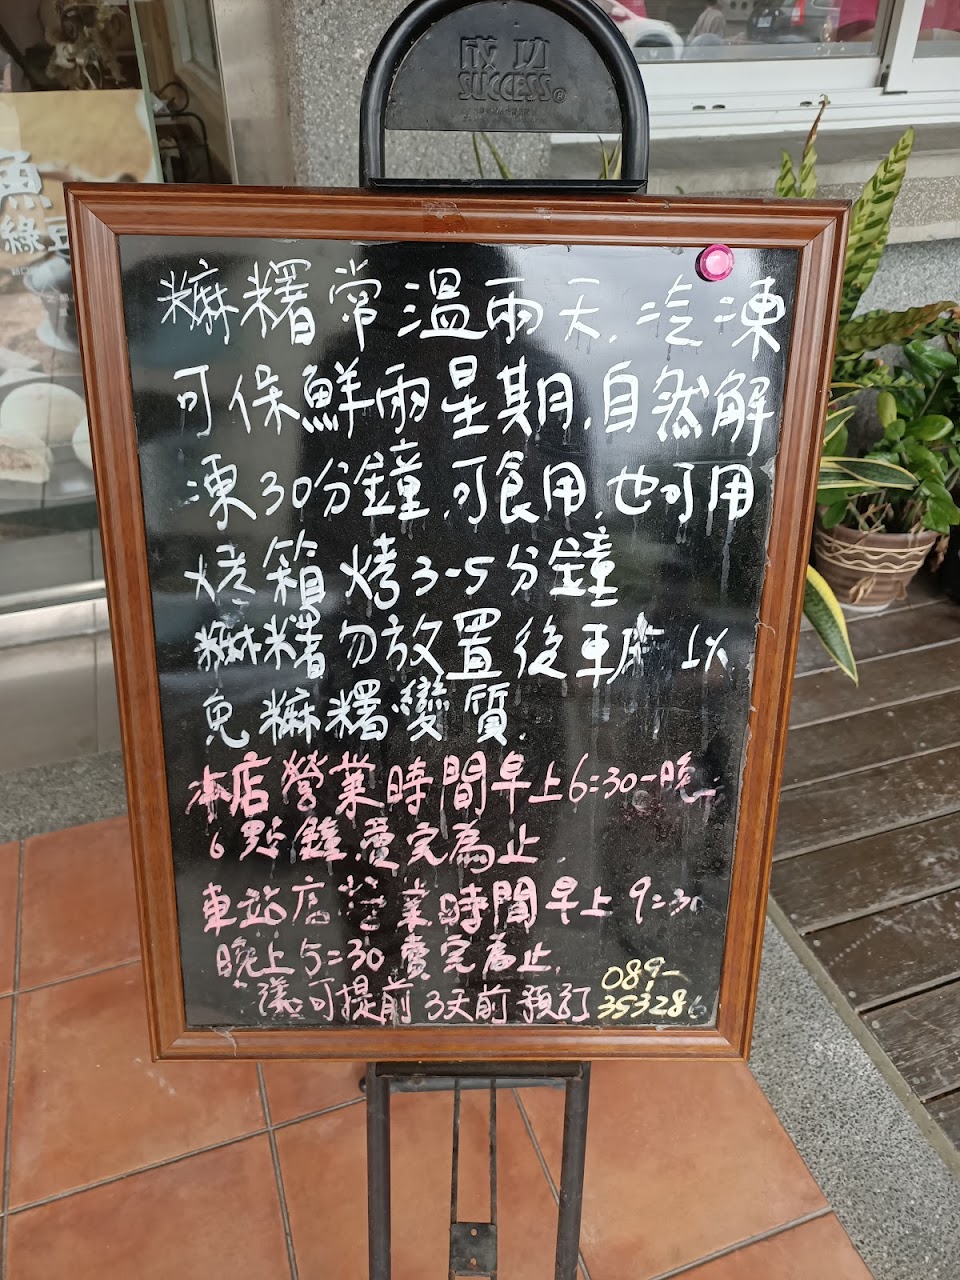 成功
SUCCESS®
魚
綠豆
麻糬常溫雨天.冷凍
可保鮮兩星期.自然解
凍30分鐘.可食用.也可用
烤箱烤3-5分鐘
麻糬勿放置後車廂上以
免麻糬變質.
本店營業時間早上6:30-晚
6點鐘賣完為止.
車站店營業時間早上9:30
晚上5:30賣完為止.
可提前3天前預訂
089-
353286